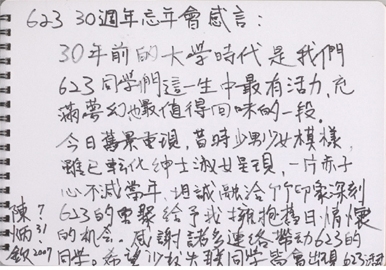 623 30週年忘年會感言：
30年前的大学時代是我們
623同學們這一生中最有活力，充
滿夢幻也最值得回味的一段。
今日舊景重現，昔時少男少女模樣，
雖已転化紳士淑女呈現，一片赤子
心不減當年，坦誠融洽 印象深刻
623的電聚給予我擁抱舊日情懷
的机会。感謝諸多連絡帶動623的
同学。希望少数失联同学皆會出現
2007